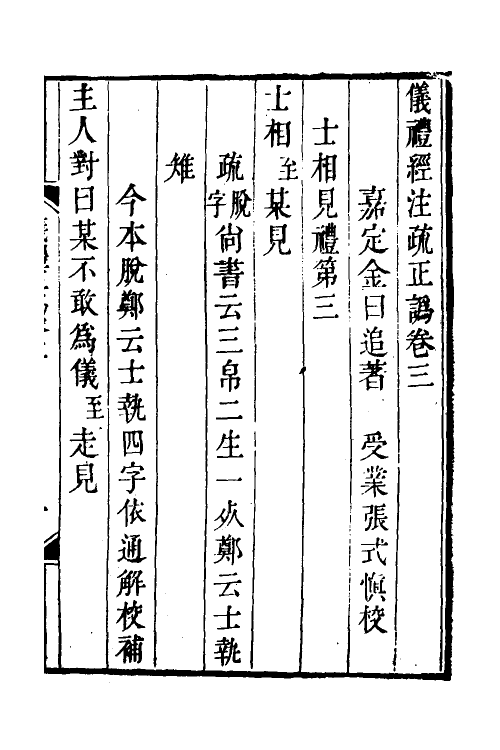 儀禮經注疏正譌卷三
嘉定金曰追著　受業張式慎校
士相見禮第三
士相至某見
疏脫字尚書云三帛二生一死鄭云士執
雉
今本脫鄭云士執四字依通解校補
主人對曰某不敢爲儀至走見